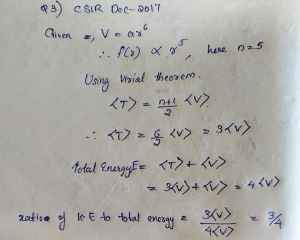 Q3) CSIR Dec-2017
Given =, V = ar⁶
∴ f(r) ∝ r⁵, here n=5
Using virial theorem.
⟨T⟩ = n+1/2 ⟨V⟩
∴ ⟨T⟩ = 6/2 ⟨V⟩ = 3⟨V⟩
Total Energy E = ⟨T⟩ + ⟨V⟩
= 3⟨V⟩ + ⟨V⟩ = 4⟨V⟩
ratio of KE to total energy = 3⟨V⟩/4⟨V⟩ = 3/4